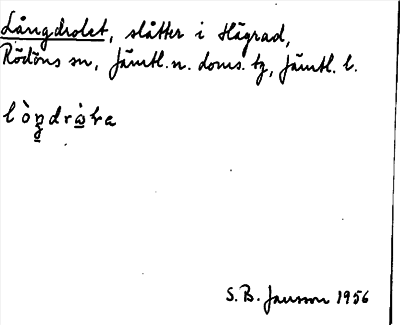 Långdrolet, slåtter i Hägrad,
Rödöns sn, Jämtl. n. doms. tg, Jämtl. l.
S. B. Jansson 1956